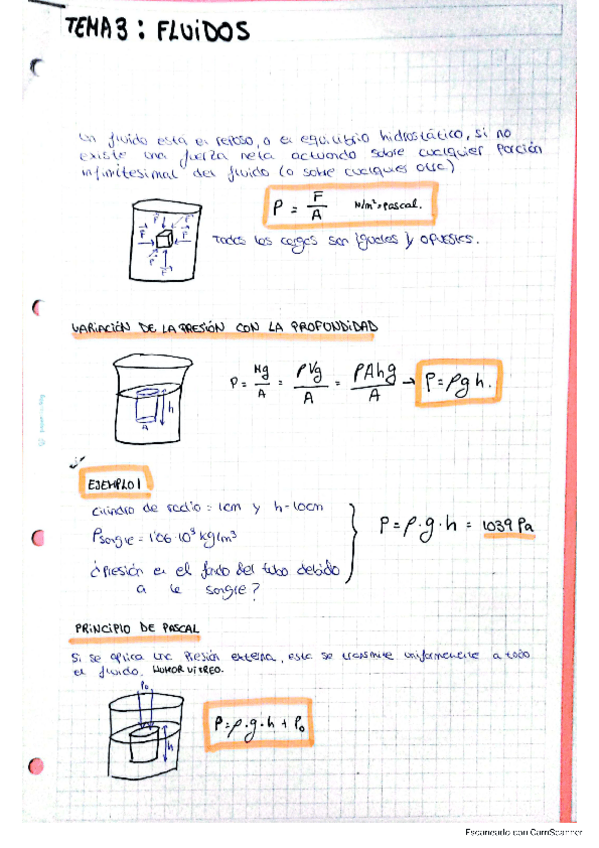 TEMA 3 : FLUIDOS
Un fluido está en reposo, o en equilibrio hidrostático, si no
existe una fuerza neta actuando sobre cualquier porción
infinitesimal del fluido (o sobre cualquier otro)
P = F/A N/m² = Pascal.
Todas las cargas son iguales y opuestas.
VARIACIÓN DE LA PRESIÓN CON LA PROFUNDIDAD
P = Mg/A = ρVg/A = ρAhg/A → P = ρgh.
h
A
EJEMPLO 1
cilindro de radio = 1cm y h = 10cm
ρsangre = 1'06·10³ kg/m³
P = ρ·g·h = 1039 Pa
¿Presión en el fondo del tubo debido
a la sangre?
PRINCIPIO DE PASCAL
Si se aplica una presión externa, esta se transmite uniformemente a todo
el fluido. HUMOR VITREO.
P₀
h
P = ρ·g·h + P₀
Escaneado con CamScanner